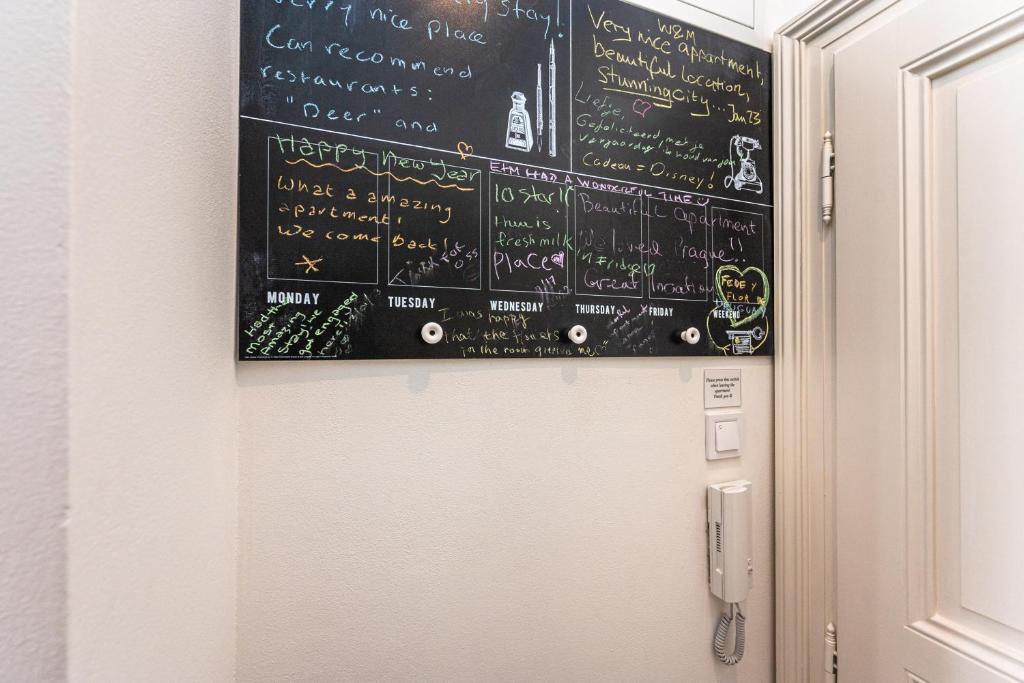 Very nice place
Stay!
Can recommend
restaurants:
"Deer" and
W&M
Very nice appartment,
beautiful location,
stunning city... Jan 23
Liefje,
Gefeliciteerd met je
verjaardag
Cadeau = Disney!
Happy New Year
What a amazing
apartment!
We come back!
E+M HAD A WONDERFUL TIME
10 star!!
there is
fresh milk
in Fridge
place
Beautiful apartment
We loved Prague!!
Great location
FEDE Y
FLOR
MONDAY
TUESDAY
WEDNESDAY
THURSDAY
FRIDAY
WEEKEND
Had the
most
amazing
stay! we
got engaged
here
I was happy
that the flowers
in the room
Please press this switch
when leaving the
apartment.
Thank you